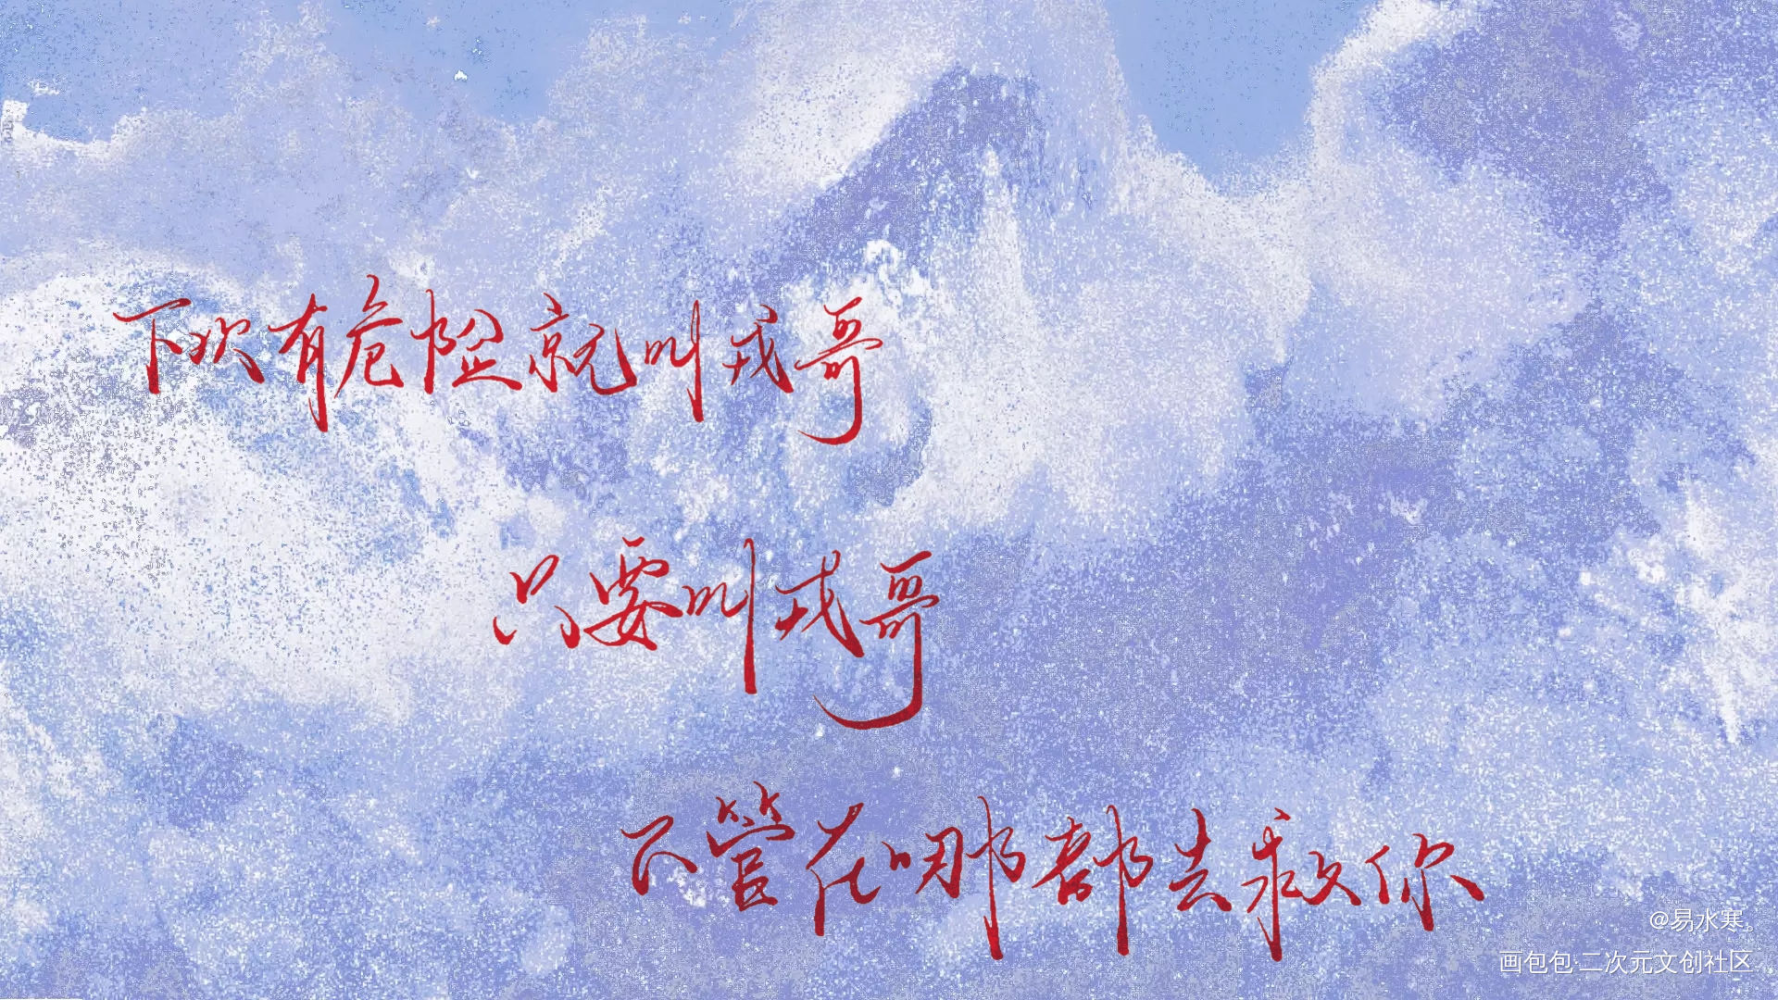 下次有危险就叫戎哥
只要叫戎哥
不管在哪都去救你
@易水寒。
画包包·二次元文创社区